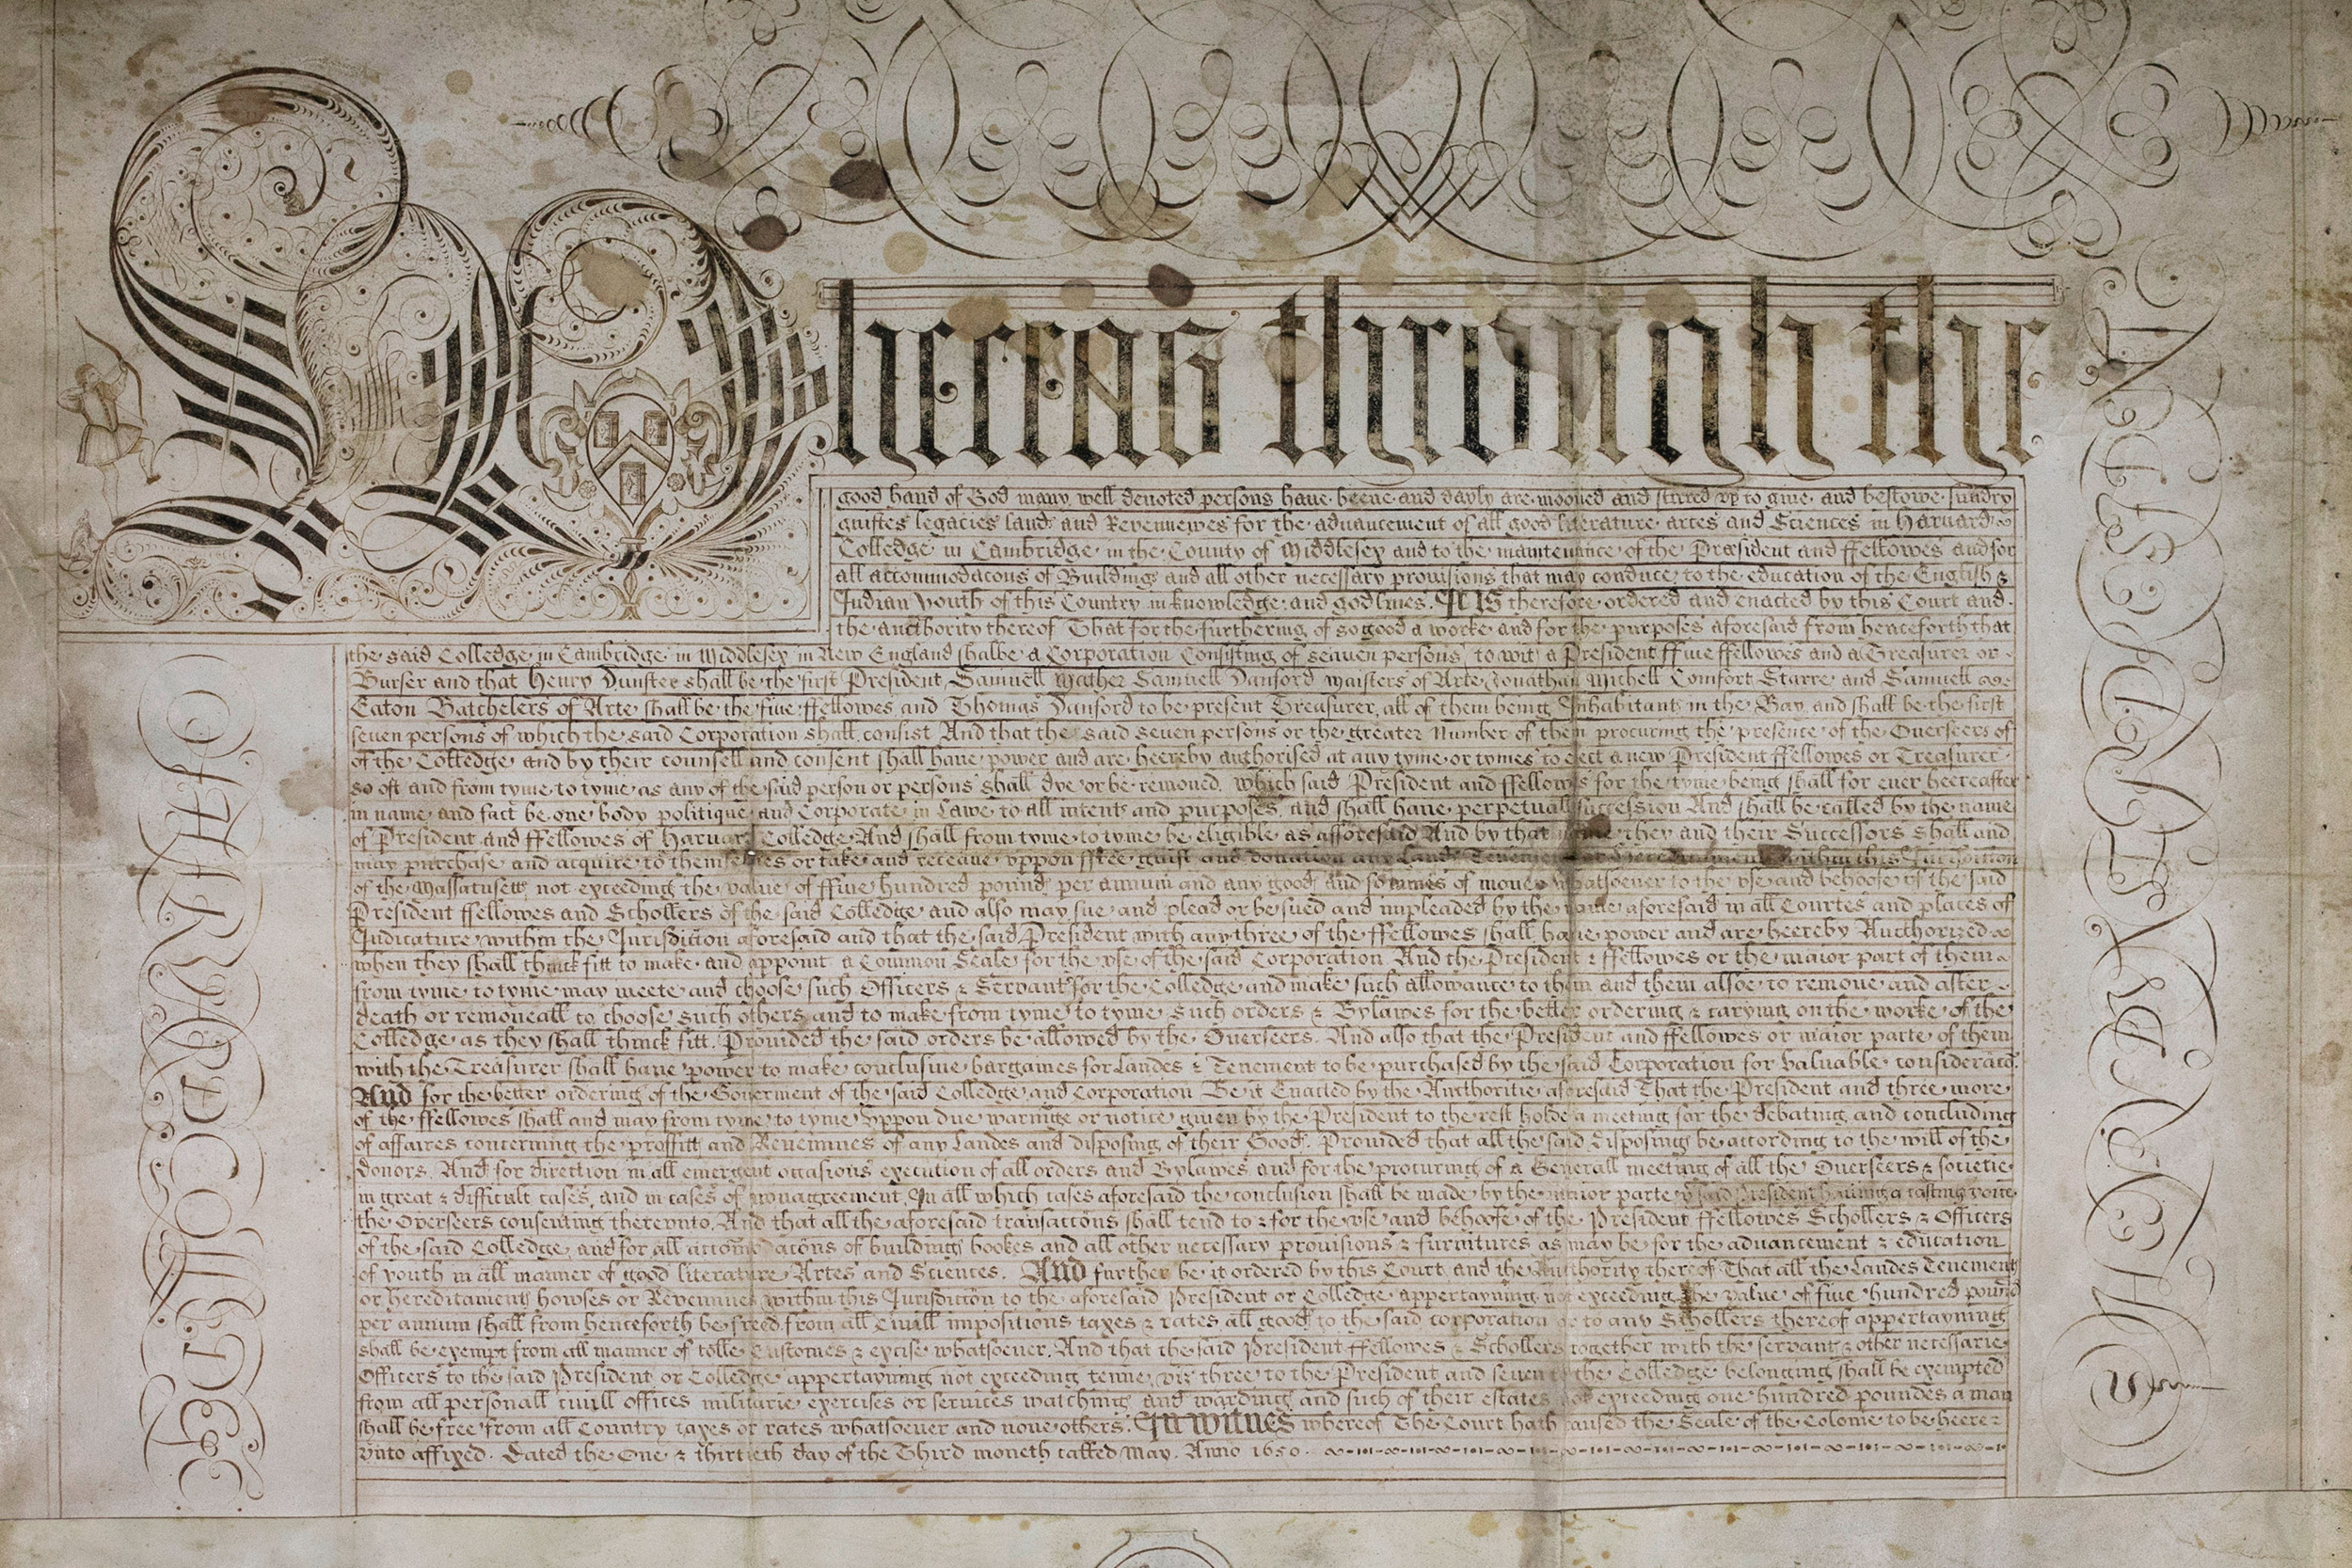 Whereas through the
good hand of God many well devoted persons haue beene and dayly are mooved and stirred vp to giue and bestowe sundry
guiftes legacies lands and Revennewes for the aduancement of all good literature artes and Sciences in Haruard
Colledge in Cambridge in the County of Middlesex and to the maintenance of the Præsident and ffellowes and for
all accommodacons of Buildings and all other necessary prouisions that may conduce to the education of the English &
Indian Youth of this Country in knowledge and godlines. It is therefore ordered and enacted by this Court and
the aucthority thereof That for the furthering of so good a worke and for the purposes aforesaid from henceforth that
the said Colledge in Cambridge in Middlesex in New England shalbe a Corporation Consisting of seauen persons to wit a President ffiue ffellowes and a Treasurer or
Burser and that Henry Dunster shall be the first President Samuell Mather Samuell Danford Maisters of Arte Jonathan Michell Comfort Starre and Samuell
Eaton Batchelers of Arte shall be the fiue ffellowes and Thomas Danford to be present Treasurer, all of them being Inhabitants in the Bay and shall be the first
seven persons of which the said Corporation shall consist And that the said seven persons or the greater Number of them procuring the presence of the Overseers of
of the Colledge and by their counsell and consent shall haue power and are heereby authorised at any tyme or tymes to elect a new President ffellowes or Treasurer
so oft and from tyme to tyme as any of the said person or persons shall dye or be remoued. Which said President and ffellowes for the tyme being shall for ever heereafter
in name and fact be one body politique and Corporate in Lawe to all intents and purposes, and shall haue perpetuall succession And shall be called by the name
of President and ffellowes of Haruard Colledge And shall from tyme to tyme be eligible as afforesaid And by that name they and their Successors shall and
may purchase and acquire to themselues or take and receaue vppon ffree guift and donation any Lands Tenements or Hereditaments within this Jurisdiction
of the Massatusetts not exceeding the value of ffiue hundred pounds per annum and any goods and sommes of money whatsoever to the vse and behoofe of the said
President ffellowes and Schollers of the said Colledge and also may sue and plead or be sued and impleaded by the name aforesaid in all Courtes and places of
Judicature within the Jurisdicion aforesaid and that the said President with any three of the ffellowes shall haue power and are heereby Aucthorized
when they shall thinck fitt to make and appoint a Common Seale for the vse of the said Corporation. And the President & ffellowes or the maior part of them
from tyme to tyme may meete and choose such Officers & Servants for the Colledge and make such allowance to them and them alsoe to remoue and after
death or remoueall to choose such others and to make from tyme to tyme such orders & Bylawes for the better ordering & carying on the worke of the
Colledge as they shall thinck fitt. Prouided the said orders be allowed by the Overseers. And also that the President and ffellowes or maior parte of them
with the Treasurer shall haue power to make conclusiue bargaines for Landes & Tenements to be purchased by the said Corporation for valuable consideracõ.
And for the better ordering of the Goverment of the said Colledge and Corporation Be it Enacted by the Aucthoritie aforesaid That the President and three more
of the ffellowes shall and may from tyme to tyme vppon due warninge or notice giuen by the President to the rest holde a meeting for the debating and concluding
of affaires concerning the proffitts and Revennues of any Landes and disposing of their Goods. Prouided that all the said disposings be according to the will of the
donors. And for direction in all emergent occasions execution of all orders and Bylawes and for the procuring of a Generall meeting of all the Overseers & societie
in great & difficult cases, and in cases of nonagreement, In all which cases aforesaid the conclusion shall be made by the maior parte ye said President hauing a casting voice
the Overseers consenting therevnto, And that all the aforesaid transaccons shall tend to & for the vse and behoofe of the President ffellowes Schollers & Officers
of the said Colledge, and for all accomodacons of buildings bookes and all other necessary prouisions & furnitures as may be for the aduancement & education
of youth in all manner of good literature Artes and Sciences. And further be it ordered by this Court and the Aucthority thereof That all the Landes Tenements
or hereditaments howses or Revennues within this Jurisdiction to the aforesaid President or Colledge appertayning not exceeding the value of fiue hundred pounds
per annum shall from henceforth be freed from all Ciuill impositions taxes & rates all goods to the said corporation or to any Schollers thereof appertayning
shall be exempt from all manner of tolle Customes & excise whatsoever. And that the said President ffellowes & Schollers together with the servants & other necessarie
Officers to the said President or Colledge appertayning not exceeding tenne, viz three to the President and seven to the Colledge belonging shall be exempted
from all personall ciuill offices militarie exercises or services watchings and wardings and such of their estates not exceeding one hundred poundes a man
shall be free from all Country taxes or rates whatsoever and none others. In witnes whereof The Court hath caused the Seale of the Colonie to be heere
vnto affixed. Dated the One & thirtieth day of the Third moneth called May. Anno 1650.